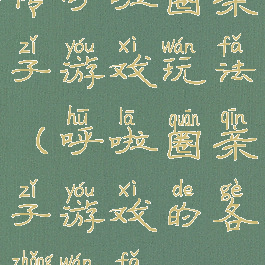 呼啦圈亲
zǐ yóu xì wán fǎ
子游戏玩法
hū lā quān qīn
（呼啦圈亲
zǐ yóu xì de gè
子游戏的各
zhǒng wán fǎ